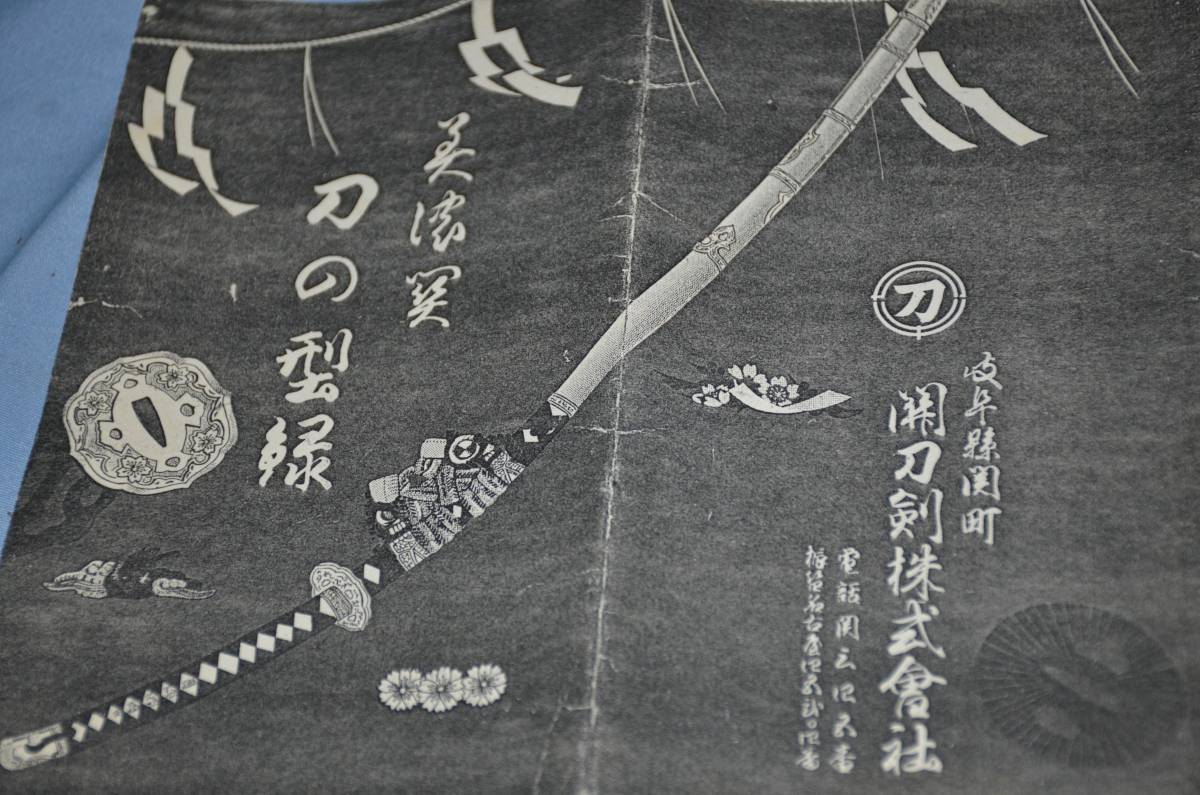 刀
岐阜縣関町
関刀剣株式會社
電話関三四五番
振替名古屋
美濃関
刀の型録